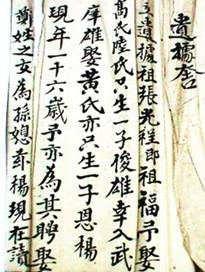 遺據書
立遺據祖張光程郎祖福予娶
高氏陸氏只生一子俊雄幸入武
庠雄娶黃氏亦只生一子恩楊
現年一十六歲予亦為其聘娶
黃姓之女為孫媳奈楊現在讀